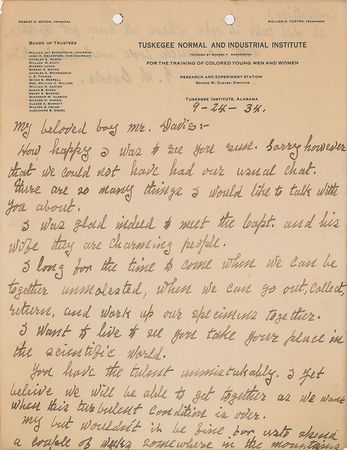 ROBERT R. MOTON, PRINCIPAL
WILLIAM H. CARTER, TREASURER
BOARD OF TRUSTEES
TUSKEGEE NORMAL AND INDUSTRIAL INSTITUTE
FOUNDED BY BOOKER T. WASHINGTON
FOR THE TRAINING OF COLORED YOUNG MEN AND WOMEN
RESEARCH AND EXPERIMENT STATION
GEORGE W. CARVER, DIRECTOR
TUSKEGEE INSTITUTE, ALABAMA
9-24-34.
My beloved boy Mr. Davis:-
How happy I was to see you sun. Sorry however
that we could not have had our usual chat.
There are so many things I would like to talk with
you about.
I was glad indeed to meet the Capt. and his
wife they are charming people.
I long for the time to come when we can be
together unmolested, when we can go out, collect,
return, and work up our specimens together.
I want to live to see you take your place in
the scientific world.
You have the talent unmistakably. I yet
believe we will be able to get together as we want
when this turbulent condition is over.
My but wouldn't it be fine for us to spend
a couple of weeks somewhere in the mountains